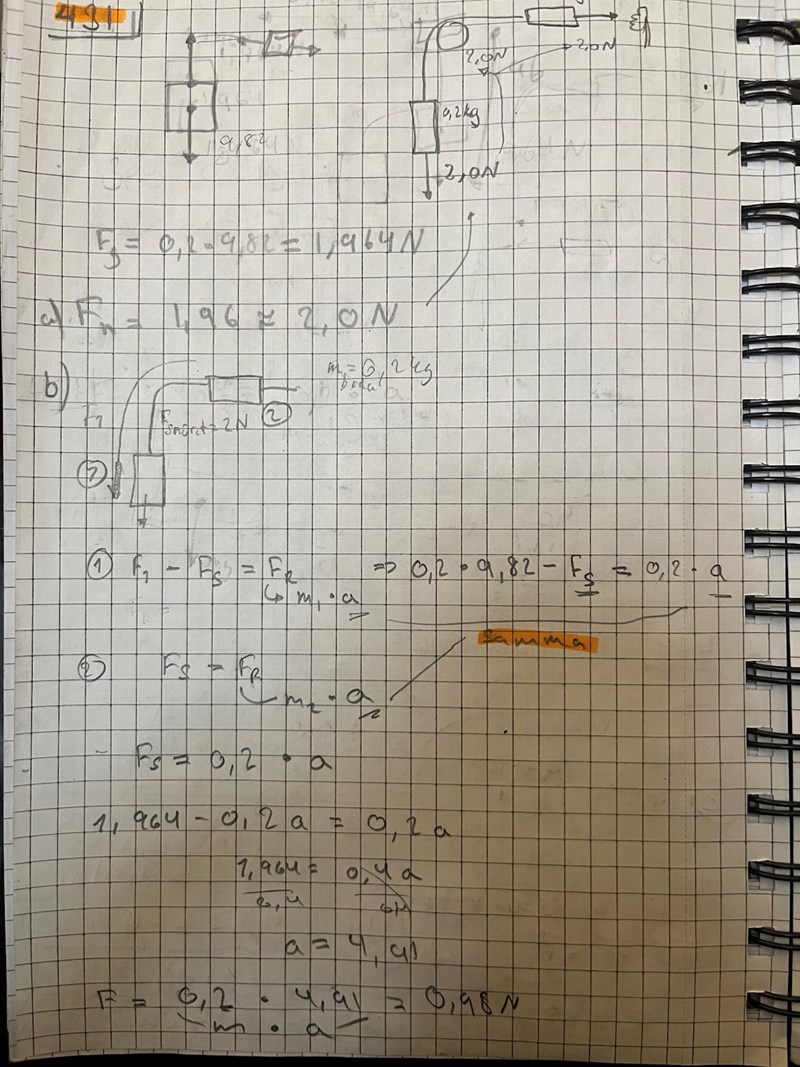 431
9,82
2,0N
2,0N
0,2kg
2,0N
Fg = 0,2 · 9,82 = 1,964 N
a) Fn = 1,96 ≈ 2,0 N
b)
m = 0,2 kg
F1
Fsnöret = 2N
②
①
① F1 - Fs = FR ⇒ 0,2 · 9,82 - Fs = 0,2 · a
↳ m1 · a
samma
② Fs = FR
m2 · a
Fs = 0,2 · a
1,964 - 0,2a = 0,2a
1,964 = 0,4a
0,4 0,4
a = 4,91
F = 0,2 · 4,91 = 0,98N
m · a